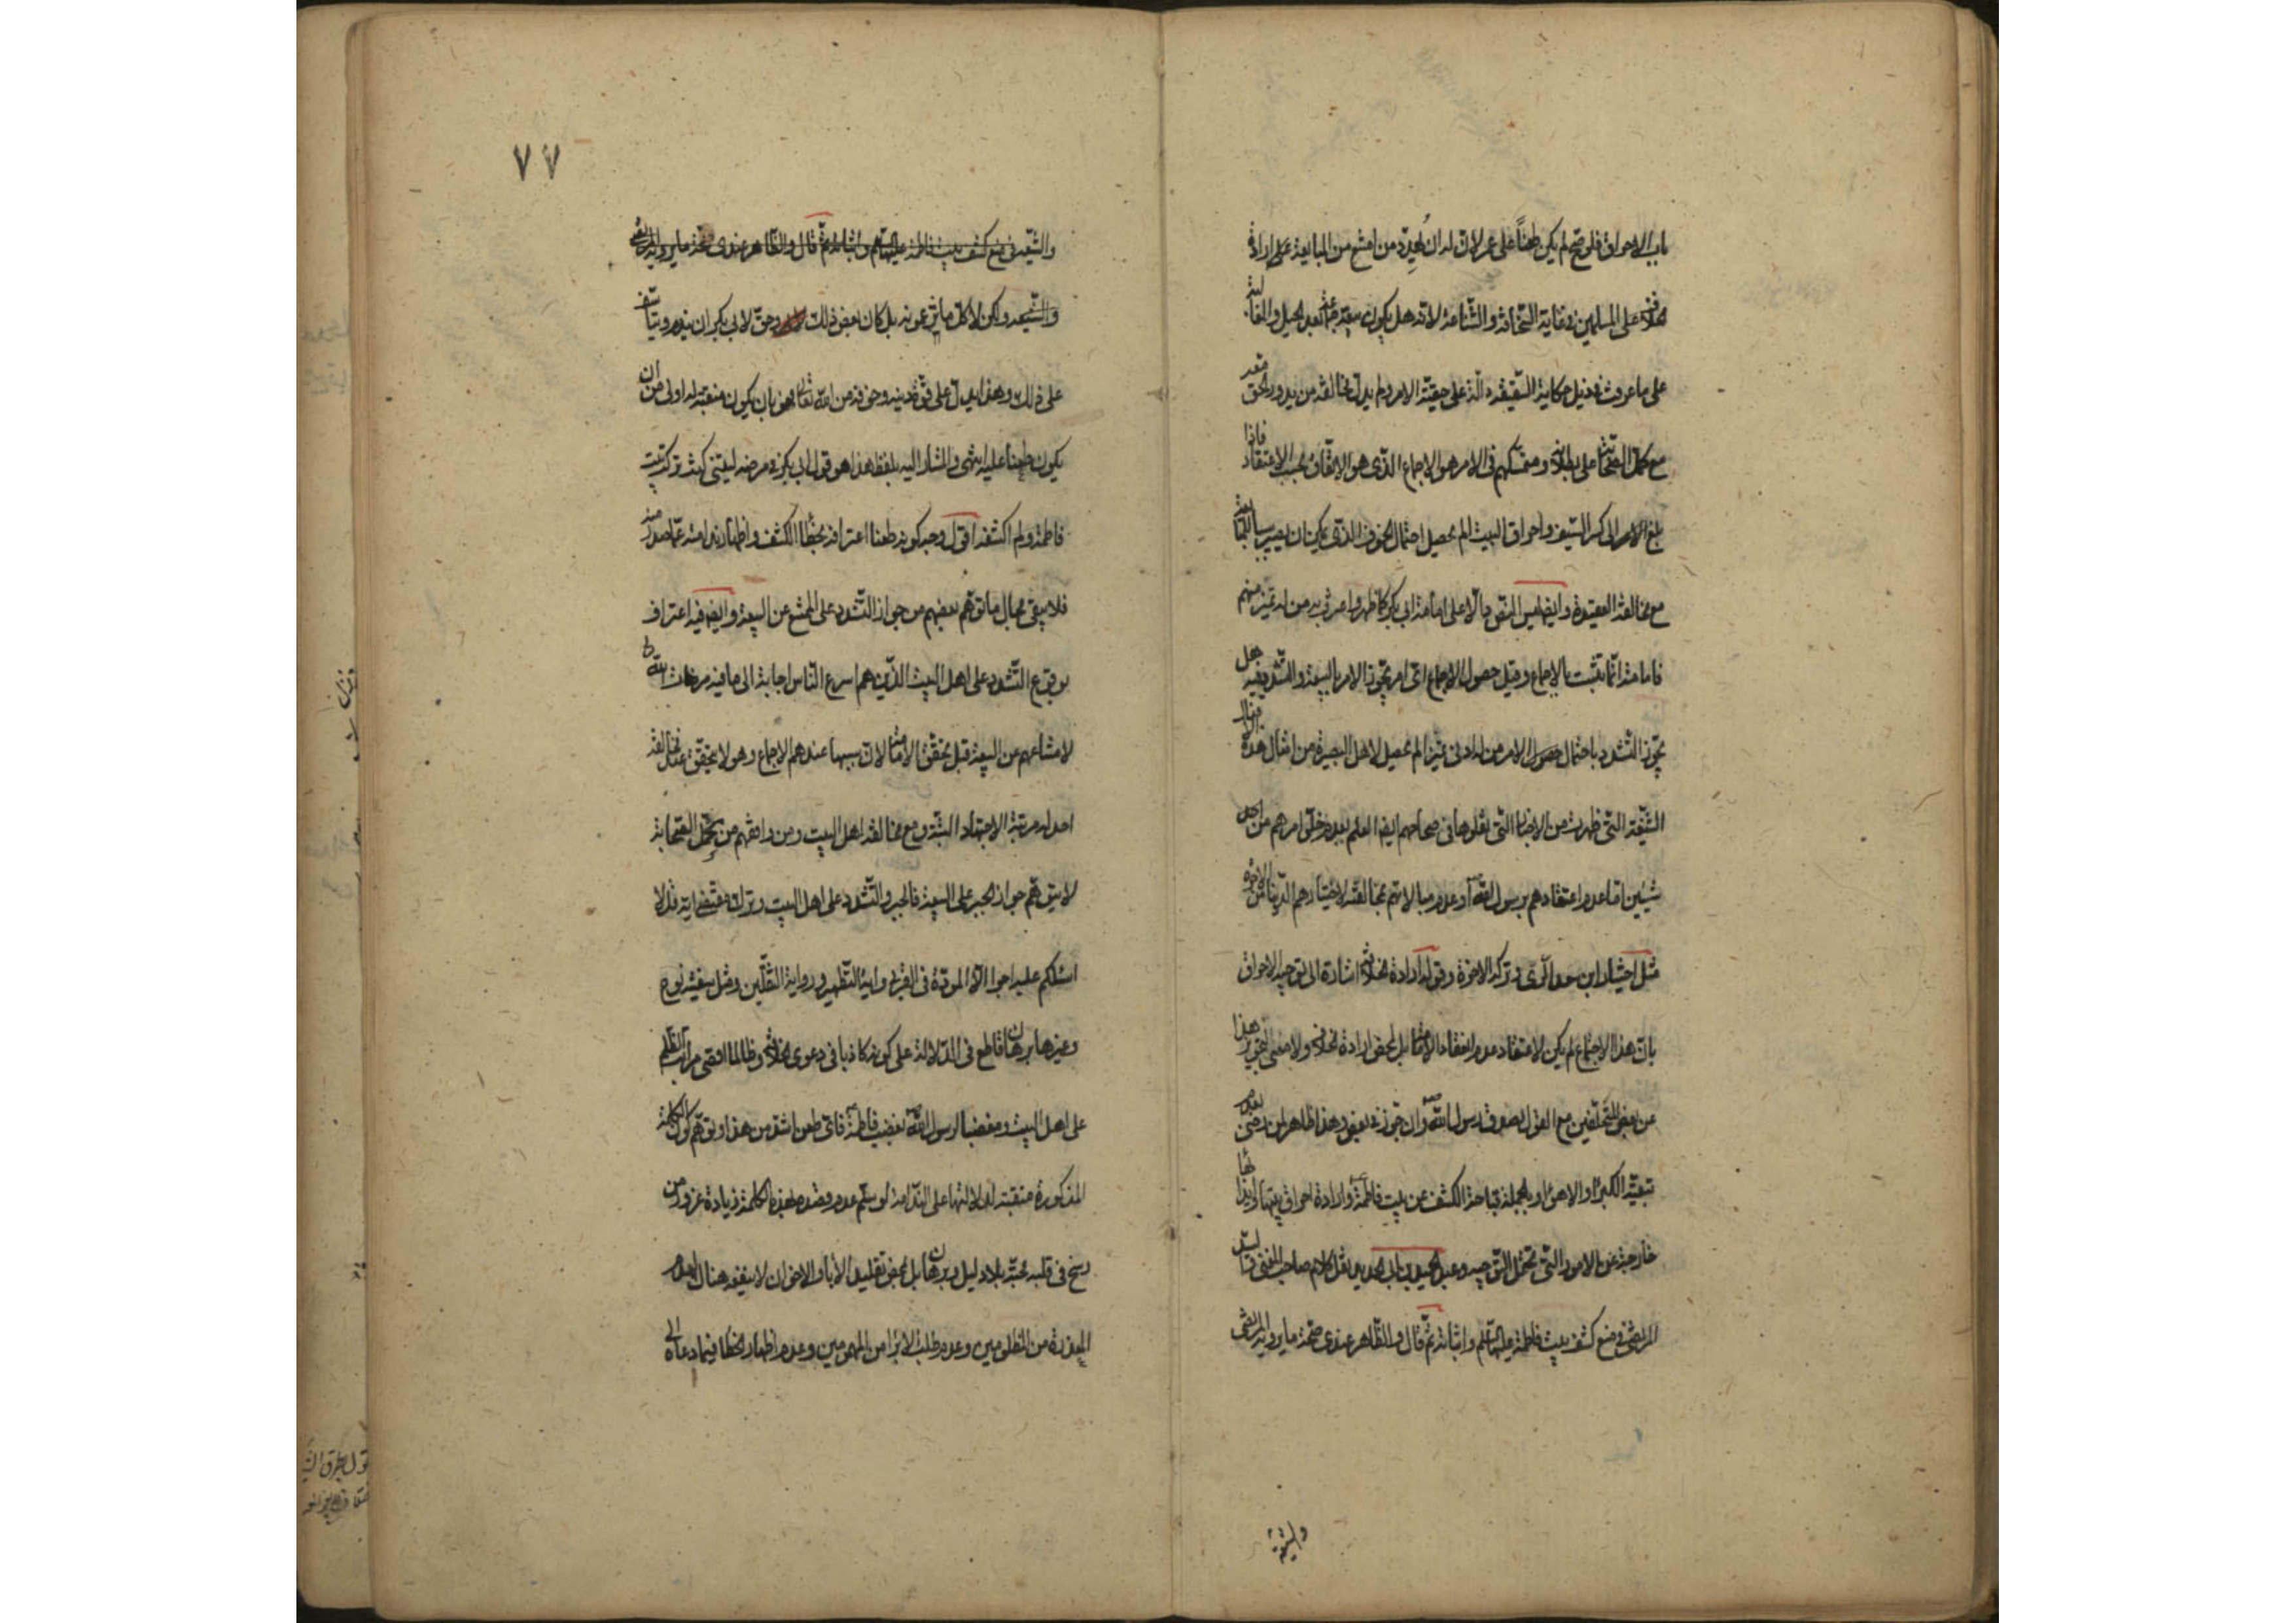 باب الاحراق فلو صح لم يكن طعناً على عمر لان له ان يهدد من امتنع من المبايعة على ارادة
الخلاف على المسلمين وغاية السخافة والشناعة لانه هل يكون بيعة جماعة بعد الحيل والمغالبة
على ما عرفت في ذيل حكاية السقيفة دالة على حقية الامر ولم يدل مخالفة من يدور الحق معه
مع كمل الصحابة على بطلانه ومتمسكهم في الامر هو الاجماع الذي هو الاتفاق بحسب الاعتقاد فاذا
بلغ الامر الى كسر السيف واحراق البيت الم يحصل احتمال الخوف الذي يمكن ان يصير سببا للمبايعة
مع مخالفة العقيدة وايضا ليس النص دالا على امامة ابي بكر كما ظهر واعترف به من له تميز منهم
فامامته انما تثبت بالاجماع وقبل حصول الاجماع اي امر يجوز الامر بالبيعة والتشديد فيه هل
يجوز التشدد باحتمال حصول الامر من له ادنى تميز الم يحصل لاهل البصيرة من امثال هذه الافعال
الشنيعة التي ظهرت من الاخبار التي نقلوها في صحاحهم ايضا العلم بعدم خلو امرهم من احد
شيئين اما عدم اعتقادهم برسول الله او عدم مبالاتهم بمخالفته لاختيارهم الدنيا على الآخرة
مثل اختيار ابن سعد الري وتركه الاخرة وقوله ارادة للخلاف اشارة الى توجيه الاحراق
بان هذا الاجتماع لم يكن لاعتقاد عدم انعقاد الامامة بل لمحض ارادة الخلاف ولا معنى لتجويز هذا
عن بعض المتخلفين مع القول بصدق رسول الله وان جوز في بعض وهذا ظاهر لمن رضي بعدم
تبعية الكبراء والاهواء وبالجملة قباحة الكشف عن بيت فاطمة وارادة احراق بيتها وايذائها
خارجة عن الامور التي تحتمل التوجيه وعبد الحميد بن ابي الحديد بعد نقل كلام صاحب المغني وكلام السيد
المرتضى في منع كشف بيت فاطمة عليها السلم واثباته ثم قال والظاهر عندي صحة ما يرويه المرتضى
والشيعة
٧٧
والشيعة في منع كشف بيت فاطمة عليها السلم واثباته ثم قال والظاهر عندي صحة ما يرويه المرتضى
والشيعة ولكن لا كل ما يدعونه بل كان بعض ذلك وحق لابي بكر ان يندم ويتأسف
على ذلك وهذا يدل على قوة دينه وخوفه من الله تعالى فهو بان يكون منقبة له اولى من ان
يكون طعنا عليه انتهى والمشار اليه بلفظ هذا هو قول ابي بكر في مرضه ليتني كنت تركت بيت
فاطمة ولم اكشفه اقول وجه كونه طعنا اعترافه بخطأ الكشف واظهار ندامته عما صدر منه
فلا يبقى مجال ما توهم بعضهم من جواز التشدد على الممتنع عن البيعة وايضا فيه اعتراف
بوقوع التشدد على اهل البيت الذين هم اسرع الناس اجابة الى ما فيه مرضات الله
لامتناعهم عن البيعة قبل تحقق الامامة لان سببها عندهم الاجماع وهو لا يتحقق عند مخالفة
احد له مرتبة الاجتهاد البتة ومع مخالفة اهل البيت ومن وافقهم من كمل الصحابة
لا يتوهم جواز الجبر على البيعة فالجبر والتشدد على اهل البيت وترك مقتضى اية قل لا
اسئلكم عليه اجرا الا المودة في القربى واية التطهير ورواية الثقلين ومثل سفينة نوح
وغيرها برهان قاطع في الدلالة على كونه كاذبا في دعوى الخلافة وظالما اقصى مراتب الظلم
على اهل البيت ومغضبا لرسول الله بغضب فاطمة فاي طعن اشد من هذا وتوهم كون الكلمة
المذكورة منقبة له لدلالتها على الندامة لو سلم عدم قصده بهذه الكلمة زيادة غرور من
رسخ في قلبه محبته بلا دليل وبرهان بل بمحض تقليد الآباء والاخوان لا ينفعه هناك لعدم
المعذرة من المظلومين وعدم طلب الابراء من المهمومين وعدم اظهار الخطأ فيما دعاه الى